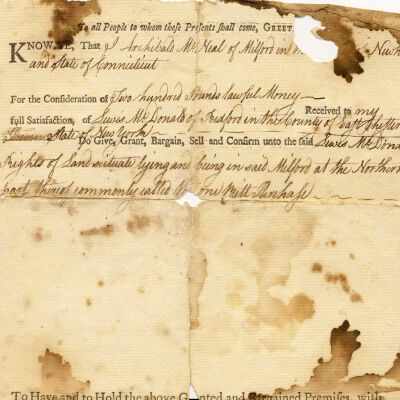 To all People to whom these Presents shall come, GREET
KNOW YE, That I Archibald McNeal of Milford in
and State of Connecticut
For the Consideration of Two hundred Pounds lawful Money
Received to my
full Satisfaction, of Lewis McDonald of Bedford in the County of
State of New York
Do Give, Grant, Bargain, Sell and Confirm unto the said Lewis McDona
Rights of Land situate lying and being in said Milford at the Northern
part thereof commonly called the one Bitt Purchase
To Have and to Hold the above Granted and Bargained Premises, with